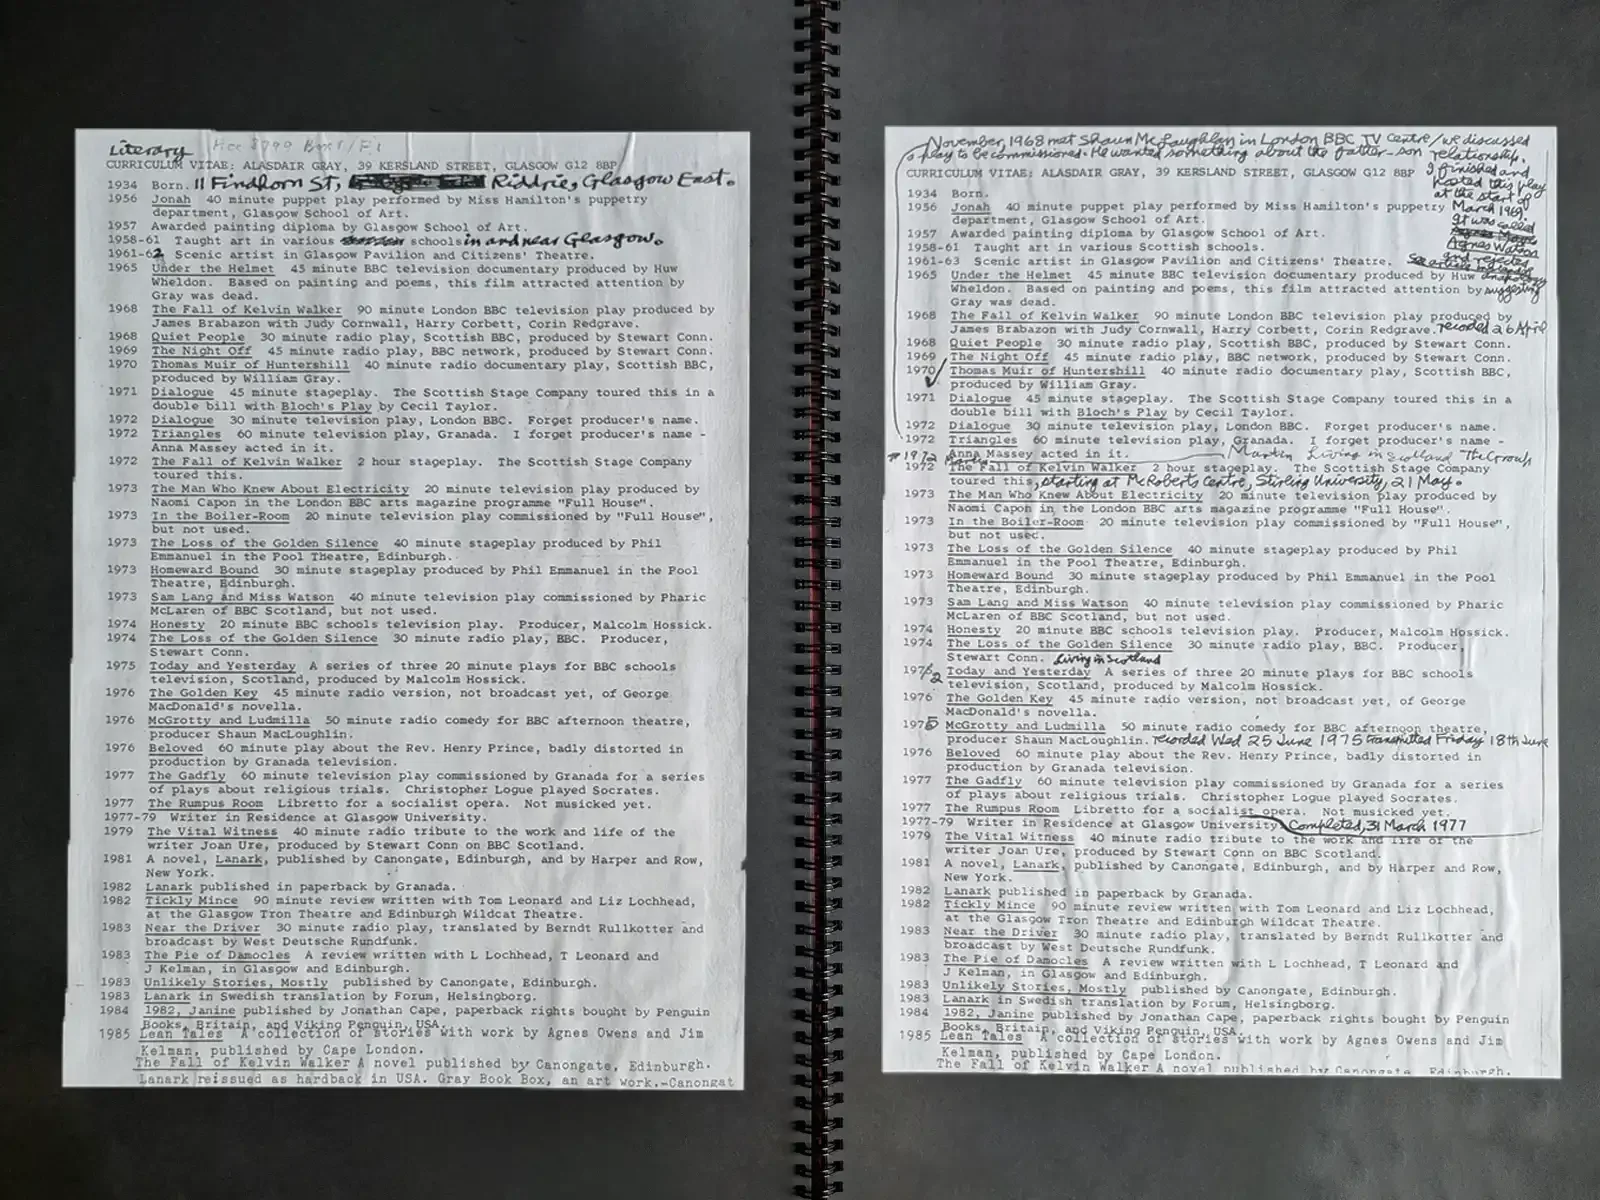 Literary Acc 8799 Box 1/F1
CURRICULUM VITAE: ALASDAIR GRAY, 39 KERSLAND STREET, GLASGOW G12 8BP
1934 Born. 11 Findhorn St, Riddrie, Glasgow East.
1956 Jonah 40 minute puppet play performed by Miss Hamilton's puppetry
department, Glasgow School of Art.
1957 Awarded painting diploma by Glasgow School of Art.
1958-61 Taught art in various schools in and near Glasgow.
1961-62 Scenic artist in Glasgow Pavilion and Citizens' Theatre.
1965 Under the Helmet 45 minute BBC television documentary produced by Huw
Wheldon. Based on painting and poems, this film attracted attention by
Gray was dead.
1968 The Fall of Kelvin Walker 90 minute London BBC television play produced by
James Brabazon with Judy Cornwall, Harry Corbett, Corin Redgrave.
1968 Quiet People 30 minute radio play, Scottish BBC, produced by Stewart Conn.
1969 The Night Off 45 minute radio play, BBC network, produced by Stewart Conn.
1970 Thomas Muir of Huntershill 40 minute radio documentary play, Scottish BBC,
produced by William Gray.
1971 Dialogue 45 minute stageplay. The Scottish Stage Company toured this in a
double bill with Bloch's Play by Cecil Taylor.
1972 Dialogue 30 minute television play, London BBC. Forget producer's name.
1972 Triangles 60 minute television play, Granada. I forget producer's name -
Anna Massey acted in it.
1972 The Fall of Kelvin Walker 2 hour stageplay. The Scottish Stage Company
toured this.
1973 The Man Who Knew About Electricity 20 minute television play produced by
Naomi Capon in the London BBC arts magazine programme "Full House".
1973 In the Boiler-Room 20 minute television play commissioned by "Full House",
but not used.
1973 The Loss of the Golden Silence 40 minute stageplay produced by Phil
Emmanuel in the Pool Theatre, Edinburgh.
1973 Homeward Bound 30 minute stageplay produced by Phil Emmanuel in the Pool
Theatre, Edinburgh.
1973 Sam Lang and Miss Watson 40 minute television play commissioned by Pharic
McLaren of BBC Scotland, but not used.
1974 Honesty 20 minute BBC schools television play. Producer, Malcolm Hossick.
1974 The Loss of the Golden Silence 30 minute radio play, BBC. Producer,
Stewart Conn.
1975 Today and Yesterday A series of three 20 minute plays for BBC schools
television, Scotland, produced by Malcolm Hossick.
1976 The Golden Key 45 minute radio version, not broadcast yet, of George
MacDonald's novella.
1976 McGrotty and Ludmilla 50 minute radio comedy for BBC afternoon theatre,
producer Shaun MacLoughlin.
1976 Beloved 60 minute play about the Rev. Henry Prince, badly distorted in
production by Granada television.
1977 The Gadfly 60 minute television play commissioned by Granada for a series
of plays about religious trials. Christopher Logue played Socrates.
1977 The Rumpus Room Libretto for a socialist opera. Not musicked yet.
1977-79 Writer in Residence at Glasgow University.
1979 The Vital Witness 40 minute radio tribute to the work and life of the
writer Joan Ure, produced by Stewart Conn on BBC Scotland.
1981 A novel, Lanark, published by Canongate, Edinburgh, and by Harper and Row,
New York.
1982 Lanark published in paperback by Granada.
1982 Tickly Mince 90 minute review written with Tom Leonard and Liz Lochhead,
at the Glasgow Tron Theatre and Edinburgh Wildcat Theatre.
1983 Near the Driver 30 minute radio play, translated by Berndt Rullkotter and
broadcast by West Deutsche Rundfunk.
1983 The Pie of Damocles A review written with L Lochhead, T Leonard and
J Kelman, in Glasgow and Edinburgh.
1983 Unlikely Stories, Mostly published by Canongate, Edinburgh.
1983 Lanark in Swedish translation by Forum, Helsingborg.
1984 1982, Janine published by Jonathan Cape, paperback rights bought by Penguin
Books, Britain, and Viking Penguin, USA.
1985 Lean Tales A collection of stories with work by Agnes Owens and Jim
Kelman, published by Cape London.
The Fall of Kelvin Walker A novel published by Canongate, Edinburgh.
Lanark reissued as hardback in USA. Gray Book Box, an art work.-Canongat
November, 1968 met Shaun McLaughlan in London BBC TV Centre / we discussed
a play to be commissioned. He wanted something about the father-son relationship.
I finished and
posted this play
at the start of
March 1969.
It was called
Agnes Watson
and rejected
CURRICULUM VITAE: ALASDAIR GRAY, 39 KERSLAND STREET, GLASGOW G12 8BP
1934 Born.
1956 Jonah 40 minute puppet play performed by Miss Hamilton's puppetry
department, Glasgow School of Art.
1957 Awarded painting diploma by Glasgow School of Art.
1958-61 Taught art in various Scottish schools.
1961-63 Scenic artist in Glasgow Pavilion and Citizens' Theatre.
1965 Under the Helmet 45 minute BBC television documentary produced by Huw
Wheldon. Based on painting and poems, this film attracted attention by suggesting
Gray was dead.
1968 The Fall of Kelvin Walker 90 minute London BBC television play produced by
James Brabazon with Judy Cornwall, Harry Corbett, Corin Redgrave. recorded 26 April
1968 Quiet People 30 minute radio play, Scottish BBC, produced by Stewart Conn.
1969 The Night Off 45 minute radio play, BBC network, produced by Stewart Conn.
1970 Thomas Muir of Huntershill 40 minute radio documentary play, Scottish BBC,
produced by William Gray.
1971 Dialogue 45 minute stageplay. The Scottish Stage Company toured this in a
double bill with Bloch's Play by Cecil Taylor.
1972 Dialogue 30 minute television play, London BBC. Forget producer's name.
1972 Triangles 60 minute television play, Granada. I forget producer's name -
Anna Massey acted in it.
1972 Martin Living in Scotland The Group
1972 The Fall of Kelvin Walker 2 hour stageplay. The Scottish Stage Company
toured this, starting at McRoberts Centre, Stirling University, 21 May.
1973 The Man Who Knew About Electricity 20 minute television play produced by
Naomi Capon in the London BBC arts magazine programme "Full House".
1973 In the Boiler-Room 20 minute television play commissioned by "Full House",
but not used.
1973 The Loss of the Golden Silence 40 minute stageplay produced by Phil
Emmanuel in the Pool Theatre, Edinburgh.
1973 Homeward Bound 30 minute stageplay produced by Phil Emmanuel in the Pool
Theatre, Edinburgh.
1973 Sam Lang and Miss Watson 40 minute television play commissioned by Pharic
McLaren of BBC Scotland, but not used.
1974 Honesty 20 minute BBC schools television play. Producer, Malcolm Hossick.
1974 The Loss of the Golden Silence 30 minute radio play, BBC. Producer,
Stewart Conn. Living in Scotland
1972 Today and Yesterday A series of three 20 minute plays for BBC schools
television, Scotland, produced by Malcolm Hossick.
1976 The Golden Key 45 minute radio version, not broadcast yet, of George
MacDonald's novella.
1975 McGrotty and Ludmilla 50 minute radio comedy for BBC afternoon theatre,
producer Shaun MacLoughlin. recorded Wed 25 June 1975 transmitted Friday 18th June
1976 Beloved 60 minute play about the Rev. Henry Prince, badly distorted in
production by Granada television.
1977 The Gadfly 60 minute television play commissioned by Granada for a series
of plays about religious trials. Christopher Logue played Socrates.
1977 The Rumpus Room Libretto for a socialist opera. Not musicked yet.
1977-79 Writer in Residence at Glasgow University. Completed, 31 March 1977
1979 The Vital Witness 40 minute radio tribute to the work and life of the
writer Joan Ure, produced by Stewart Conn on BBC Scotland.
1981 A novel, Lanark, published by Canongate, Edinburgh, and by Harper and Row,
New York.
1982 Lanark published in paperback by Granada.
1982 Tickly Mince 90 minute review written with Tom Leonard and Liz Lochhead,
at the Glasgow Tron Theatre and Edinburgh Wildcat Theatre.
1983 Near the Driver 30 minute radio play, translated by Berndt Rullkotter and
broadcast by West Deutsche Rundfunk.
1983 The Pie of Damocles A review written with L Lochhead, T Leonard and
J Kelman, in Glasgow and Edinburgh.
1983 Unlikely Stories, Mostly published by Canongate, Edinburgh.
1983 Lanark in Swedish translation by Forum, Helsingborg.
1984 1982, Janine published by Jonathan Cape, paperback rights bought by Penguin
Books, Britain, and Viking Penguin, USA.
1985 Lean Tales A collection of stories with work by Agnes Owens and Jim
Kelman, published by Cape London.
The Fall of Kelvin Walker A novel published by Canongate, Edinburgh.